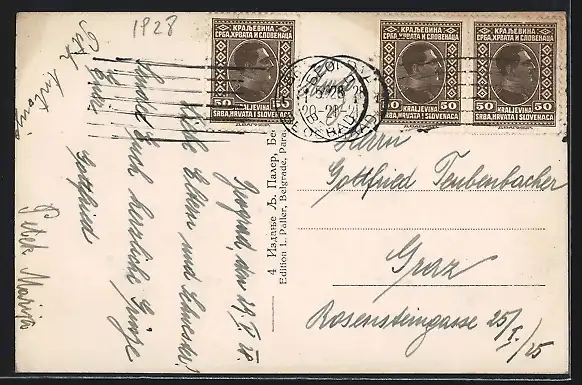 1928
КРАЉЕВИНА
СРБА, ХРВАТА И СЛОВЕНАЦА
50 50
KRALJEVINA
SRBA, HRVATA I SLOVENACA
КРАЉЕВИНА
СРБА, ХРВАТА И СЛОВЕНАЦА
50 50
KRALJEVINA
SRBA, HRVATA I SLOVENACA
КРАЉЕВИНА
СРБА, ХРВАТА И СЛОВЕНАЦА
50 50
KRALJEVINA
SRBA, HRVATA I SLOVENACA
БЕОГРАД
28
20-21
BEOGRAD
Beograd, den 29. V. 28.
Liebe Eltern und Schwester!
Sendet Euch herzliche Grüße
Euer
Gottfried
Petek Marija
4 Издање Љ. Палер,
Edition L. Paller, Belgrade,
Herrn
Gottfried Teubenbacher
Graz
Rosensteingasse 25/I./25